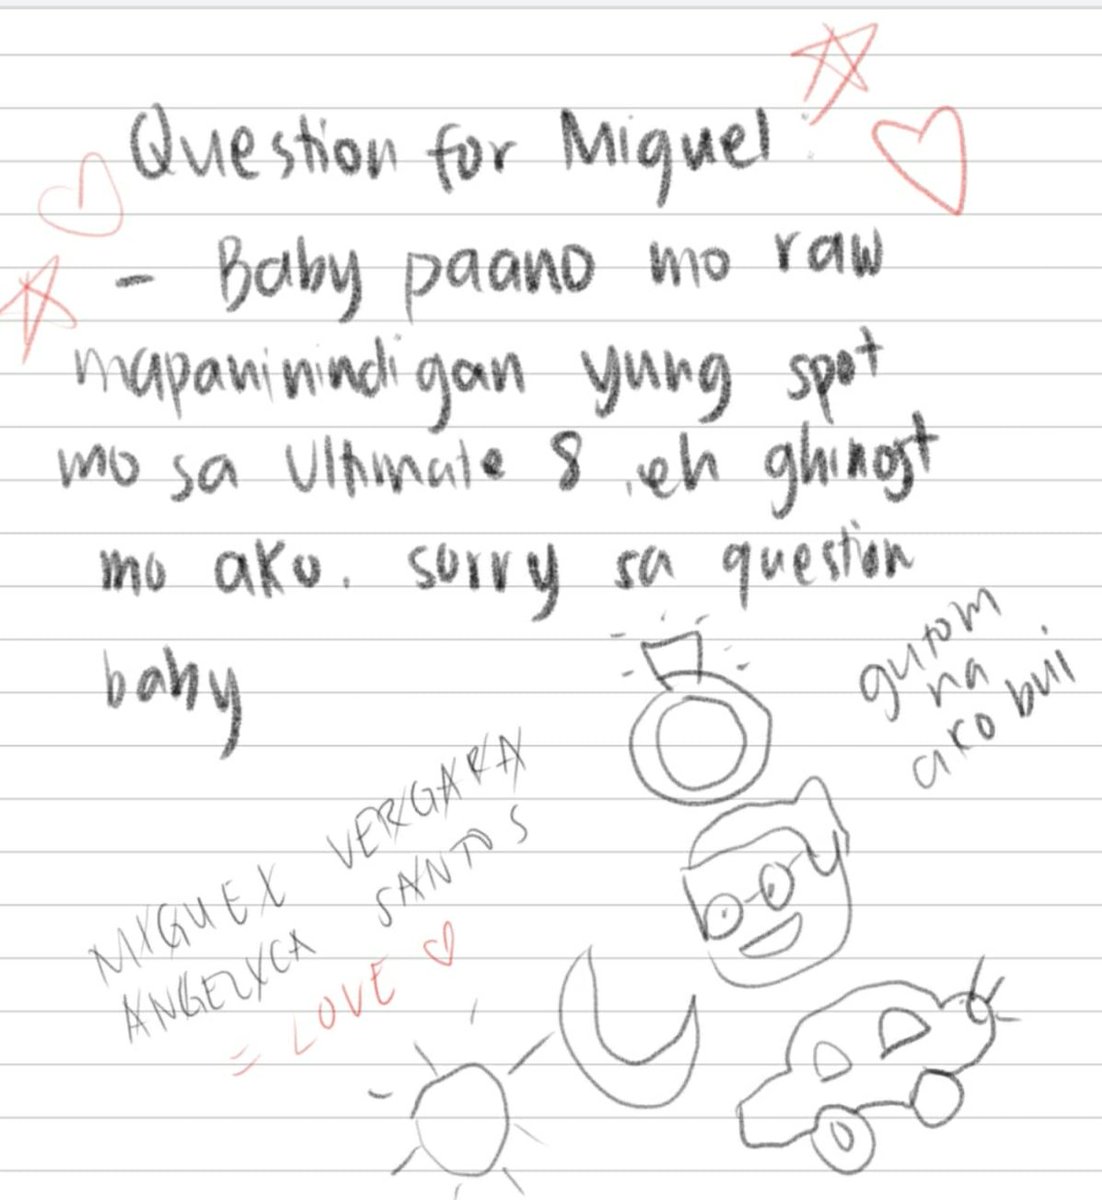 Question for Miguel :
- Baby paano mo raw
mapaninindigan yung spot
mo sa Ultimate 8 , eh ghinost
mo ako. sorry sa question
baby
gutom
na
ako bui
MIGUEL VERGARA
ANGELICA SANTOS
= LOVE